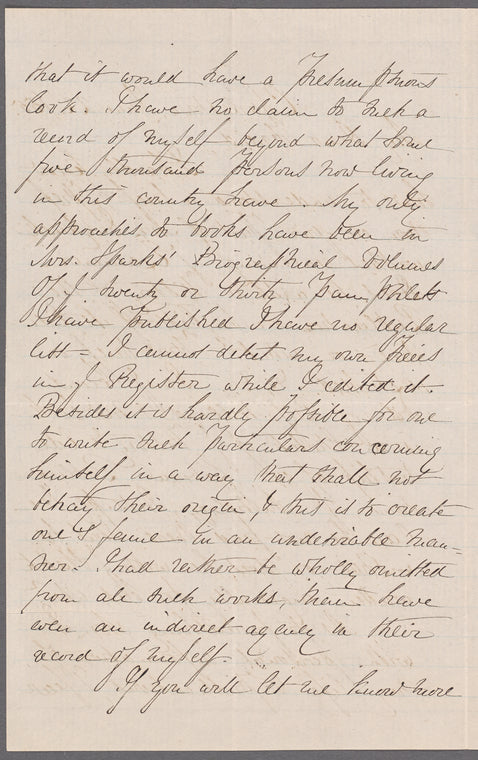 that it would have a presumptuous
look. I have no claim to such a
record of myself beyond what some
five thousand persons now living
in this country have. My only
approaches to books have been in
Mrs. Sparks' Biographical Volumes
Of y twenty or thirty Pamphlets
I have published I have no regular
list = I cannot detect my own Pieces
in y Register while I edited it.
Besides it is hardly possible for one
to write such particulars concerning
himself, in a way that shall not
betray their origin, & this is to create
one's fame in an undesirable man=
ner. I had rather be wholly omitted
from all such works, than have
even an indirect agency in their
record of myself.
If you will let me know more